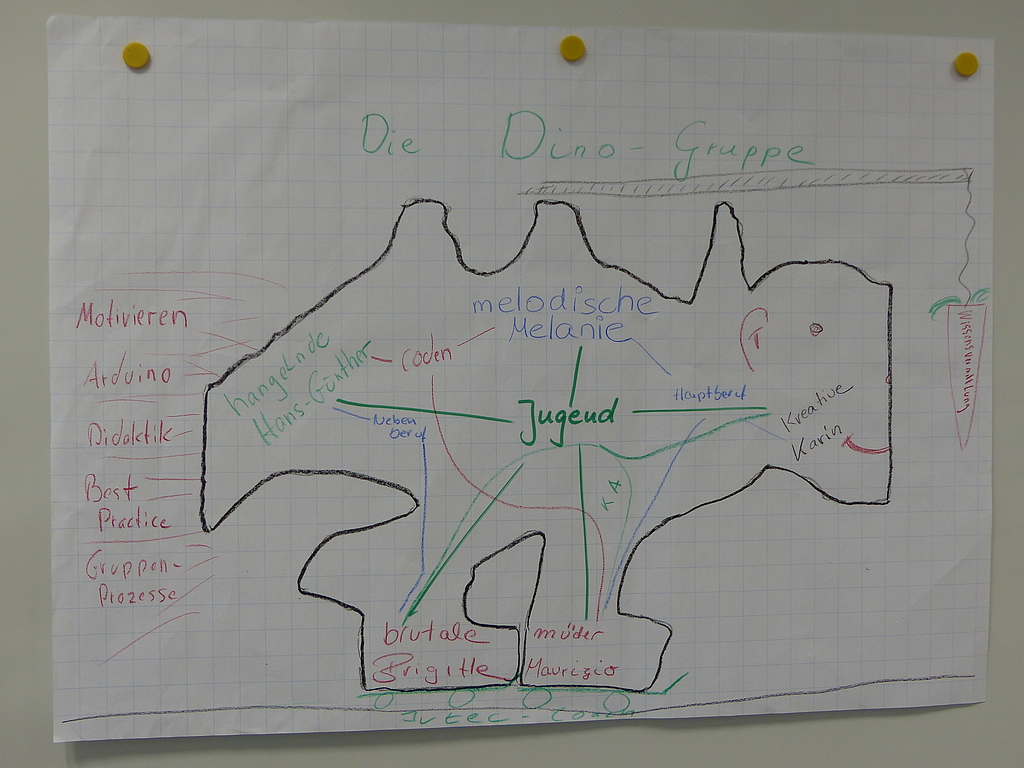 Die Dino-Gruppe
melodische
Melanie
Motivieren
Arduino
Didaktik
Best
Practice
Gruppen-
Prozesse
hangelnde
Hans-Günther
Coden
Neben
beruf
Jugend
Hauptberuf
Kreative
Karin
KA
Wissensvermittlung
brutale
Brigitte
müder
Maurizio
Jutec-Couch